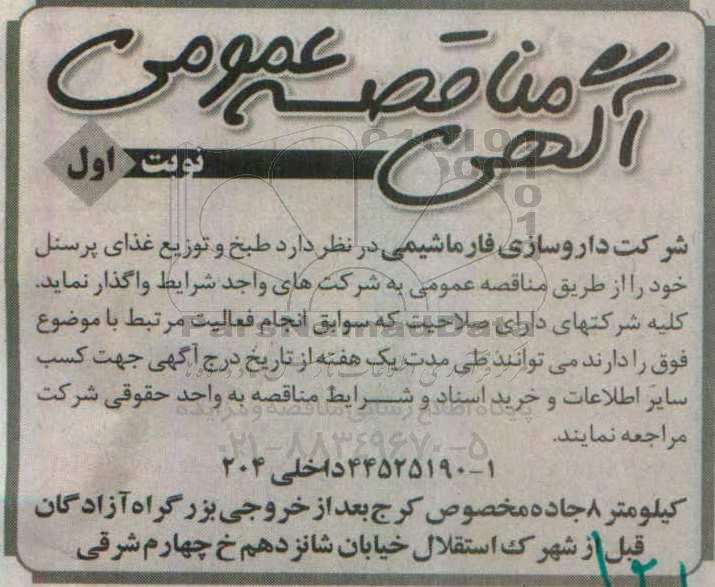 آگهی مناقصه عمومی
نوبت اول
شرکت داروسازی فارماشیمی در نظر دارد طبخ و توزیع غذای پرسنل
خود را از طریق مناقصه عمومی به شرکت های واجد شرایط واگذار نماید.
کلیه شرکتهای دارای صلاحیت که سوابق انجام فعالیت مرتبط با موضوع
فوق را دارند می توانند طی مدت یک هفته از تاریخ درج آگهی جهت کسب
سایر اطلاعات و خرید اسناد و شرایط مناقصه به واحد حقوقی شرکت
مراجعه نمایند.
۴۴۵۲۵۱۹۰-۱ داخلی ۲۰۴
کیلومتر ۸ جاده مخصوص کرج بعد از خروجی بزرگراه آزادگان
قبل از شهرک استقلال خیابان شانزدهم خ چهارم شرقی
ParsNamadData
پایگاه اطلاع رسانی مناقصه و مزایده
۰۲۱-۸۸۳۴۹۶۷۰-۵